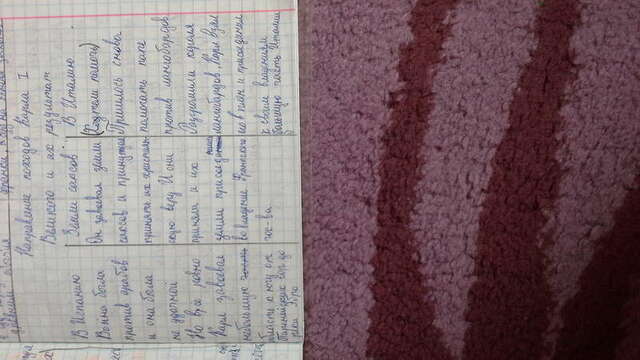 Направление походов Карла I
Великого и их результат
В Испанию
Война была
против арабов
и она была
не удачной
Но все равно
Карл завоевал
небольшую
область к югу от
Пиренейских гор до
реки Эбро
Земли саксов
Он завоевал земли
саксов и принудил
принять их христиан-
скую веру И они
приняли и их
земли присоед
во владение Франкского
гос-ва
В Италию
(Ходтели помочь)
Пришлось снова
помогать папе
против лангобардов.
Разгромили короля
лангобардов. Карл взял
его в плен и присоединил
к своим владениям
большую часть Италии